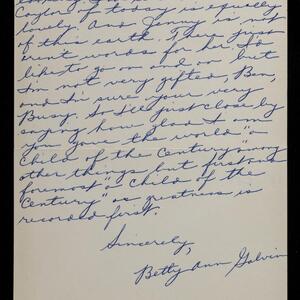 Caylor, if today is equally
lovely. And Jenny is not
of this earth. There just
arent words for her. I'd
like to go on and on but
I'm not very gifted, Ben,
and I'm sure your very
Busy. So I'll just close by
saying how glad I am
you gave the world "a
Child of the Century" among
other things but first and
foremost "a Child of the
Century" as greatness is
recorded first.
Sincerely,
Betty Ann Galvin